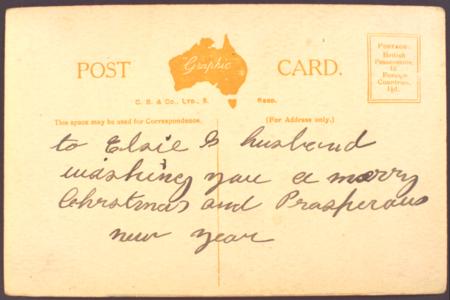 POST Graphic CARD.
C. B. & Co., Ltd., S. Regd.
POSTAGE.
British
Possessions,
1d
Foreign
Countries,
1½d.
This space may be used for Correspondence. (For Address only.)
to Elsie & husband
wishing you a merry
Christmas and Prosperous
new year